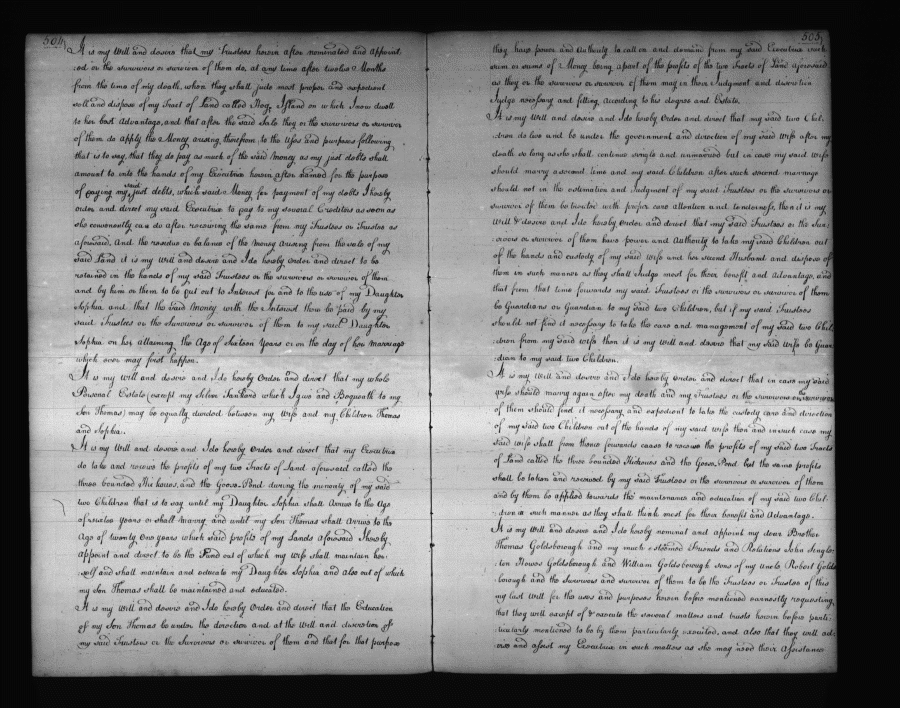 504
It is my Will and desire that my Trustees herein after nominated and appoint
ed or the survivors or survivor of them do, at any time after twelve Months
from the time of my death, when they shall jude most proper and expedient
sell and dispose of my Tract of Land called Hog Island on which I now dwell
to her best Advantage, and that after the said Sale they or the survivors or survivor
of them do apply the Money arising therefrom to the Uses and purposes following
that is to say, that they do pay as much of the said Money as my just debts shall
amount to into the hands of my Executrix herein after named for the purpose
of paying my said just debts, which said Money for payment of my debts I hereby
order and direct my said Executrix to pay to my several Creditors as soon as
she conveniently can do after receiving the same from my Trustees or Trustee as
aforesaid. And the residue or balance of the Money arising from the sale of my
said Land it is my Will and desire and I do hereby order and direct to be
retained in the hands of my said Trustees or the survivors or survivor of them
and by him or them to be put out to Interest for and to the use of my Daughter
Sophia and that the said Money with the Interest thereof be paid by my
said Trustees or the Survivors or survivor of them to my said Daughter
Sophia on her attaining the Age of Sixteen Years or on the day of her Marriage
which ever may first happen.
It is my Will and desire and I do hereby Order and direct that my whole
Personal Estate (except my Silver Tankard which I give and Bequeath to my
Son Thomas) may be equally divided between my Wife and my Children Thomas
and Sophia.
It is my Will and desire and I do hereby order and direct that my Executrix
do take and receive the profits of my two Tracts of Land aforesaid called the
three bounded Hickories, and the Goose Pond during the minority of my said
two Children that is to say until my Daughter Sophia shall Arrive to the Age
of sixteen Years or shall Marry, and until my Son Thomas shall Arrive to the
Age of twenty one years which said profits of my Lands aforesaid I hereby
Appoint and direct to be the Fund out of which my Wife shall maintain her-
self and shall maintain and educate my Daughter Sophia and also out of which
my Son Thomas shall be maintained and educated.
It is my Will and desire and I do hereby Order and direct that the Education
of my Son Thomas be under the direction and at the Will and discretion of
my said Trustees or the Survivors or survivor of them and that for that purpose
505
they have power and Authority to call on and demand from my said Executrix such
sum or sums of Money being apart of the profits of the two Tracts of Land aforesaid
as they or the survivors or survivor of them may in their Judgment and discretion
Judge necessary and fitting according to his degree and Estate.
It is my Will and desire and I do hereby Order and direct that my said two Chil-
dren do live and be under the government and direction of my said Wife after my
death so long as she shall continue single and unmarried but in case my said Wife
should marry a second time and my said Children after such second marriage
should not in the estimation and Judgment of my said Trustees or the survivors or
survivor of them be treated with proper care attention and tenderness, then it is my
Will & desire and I do hereby Order and direct that my said Trustees or the Sur-
vivors or survivor of them have power and Authority to take my said Children out
of the hands and custody of my said Wife and her second Husband and dispose of
them in such manner as they shall Judge most for their benefit and Advantage, and
that from that time forwards my said Trustees or the survivors or survivor of them
be Guardians or Guardian to my said two Children, but if my said Trustees
should not find it necessary to take the care and management of my said two Chil-
dren from my said Wife then it is my Will and desire that my said Wife be Guar
dian to my said two Children.
It is my Will and desire and I do hereby order and direct that in case my said
Wife should marry again after my death and my Trustees or the survivors or the survivor
of them should find it necessary and expedient to take the custody care and direction
of my said two Children out of the hands of my said wife then and in such case my
Said Wife shall from thence forwards cease to receive the profits of my said two Tracts
of Land called the three bounded Hickories and the Goose Pond but the same profits
shall be taken and received by my said Trustees or the survivors or survivor of them
and by them be applied towards the maintenance and education of my said two Chil-
dren in such manner as they shall think most for their benefit and Advantage.
It is my Will and desire and I do hereby nominate and appoint my dear Brother
Thomas Goldsborough and my much esteemed Friends and Relations John Single-
ton Howes Goldsborough and William Goldsborough sons of my Uncle Robert Golds
borough and the Survivors and survivor of them to be the Trustees or Trustee of this
my last Will for the uses and purposes herein before mentioned earnestly requesting
that they will accept of & execute the several matters and trusts herein before parti-
cularly mentioned to be by them particularly executed, and also that they will ad-
vise and assist my Executrix in such matters as she may need their Assistance